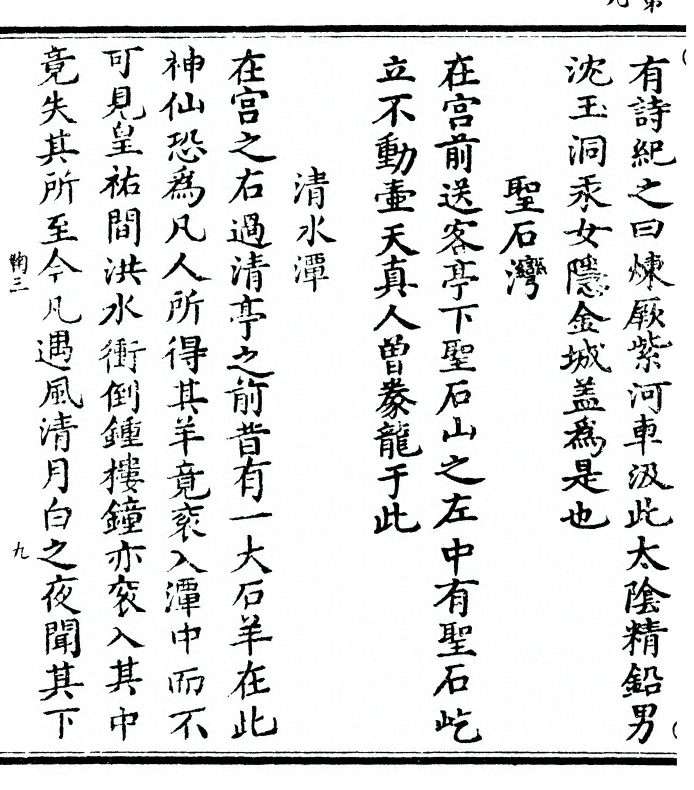 有詩紀之曰煉厥紫河車汲此太陰精鉛男
沈玉洞汞女隱金城盖爲是也
聖石灣
在宫前送客亭下聖石山之左中有聖石屹
立不動壷天真人曾豢龍于此
清水潭
在宫之右過清亭之前昔有一大石羊在此
神仙恐爲凡人所得其羊竟衮入潭中而不
可見皇祐間洪水衝倒鍾樓鐘亦衮入其中
竟失其所至今凡遇風清月白之夜聞其下
鞠三
九